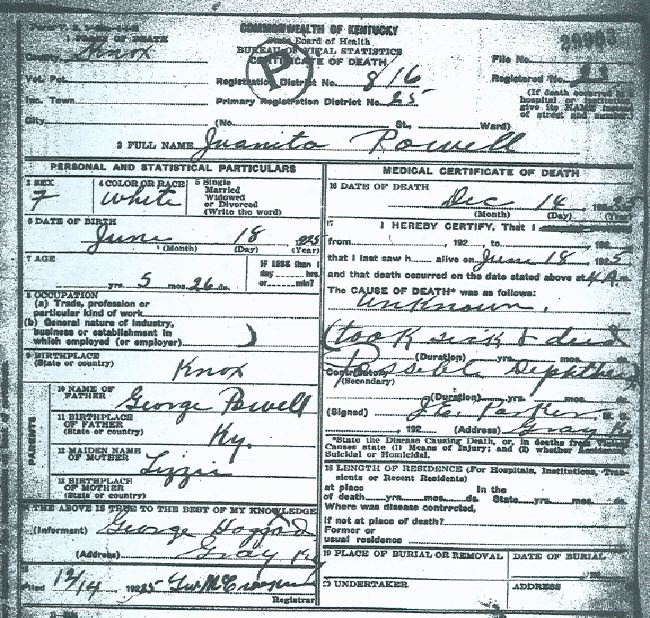 COMMONWEALTH OF KENTUCKY
State Board of Health
BUREAU OF VITAL STATISTICS
CERTIFICATE OF DEATH
OF DEATH
Knox
File No.
Vot. Pct.
Registration District No. 816
Registered No.
Inc. Town
Primary Registration District No. 25
(If death occurred
hospital or institution
give its NAME instead
of street and number.
City (No. St., Ward)
P
2 FULL NAME Juanita Powell
PERSONAL AND STATISTICAL PARTICULARS
3 SEX
F
4 COLOR OR RACE
White
5 Single
Married
Widowed
or Divorced
(Write the word)
6 DATE OF BIRTH
June 18 1925
(Month) (Day) (Year)
7 AGE
yrs. 5 mos. 26 ds.
IF LESS than 1
day hrs.
or min?
8 OCCUPATION
(a) Trade, profession or
particular kind of work
(b) General nature of industry,
business or establishment in
which employed (or employer)
9 BIRTHPLACE
(State or country)
Knox
PARENTS
10 NAME OF
FATHER
George Powell
11 BIRTHPLACE
OF FATHER
(State or country)
Ky.
12 MAIDEN NAME
OF MOTHER
Lizzie
13 BIRTHPLACE
OF MOTHER
(State or country)
THE ABOVE IS TRUE TO THE BEST OF MY KNOWLEDGE
(Informant) George
(Address) Gray Ky
Filed 12/14 1925
Registrar
MEDICAL CERTIFICATE OF DEATH
16 DATE OF DEATH
Dec 14 1925
(Month) (Day) (Year)
17 I HEREBY CERTIFY, That I
from , 192 to 192
that I last saw h alive on June 18, 1925
and that death occurred on the date stated above at 4 A m.
The CAUSE OF DEATH* was as follows:
Unknown.
(took sick & died
(Duration) yrs. mos. ds.
Possible
Contributory
(Secondary)
(Duration) yrs. mos. ds.
(Signed) Parker M. D.
, 192 (Address) Gray Ky
*State the Disease Causing Death, or, in deaths from
Causes state (1) Means of Injury; and (2) whether Accidental
Suicidal or Homicidal.
18 LENGTH OF RESIDENCE (For Hospitals, Institutions, Tran-
sients or Recent Residents)
at place In the
of death yrs. mos. ds. State yrs. mos. ds.
Where was disease contracted,
if not at place of death?
Former or
usual residence
19 PLACE OF BURIAL OR REMOVAL
DATE OF BURIAL
20 UNDERTAKER
ADDRESS